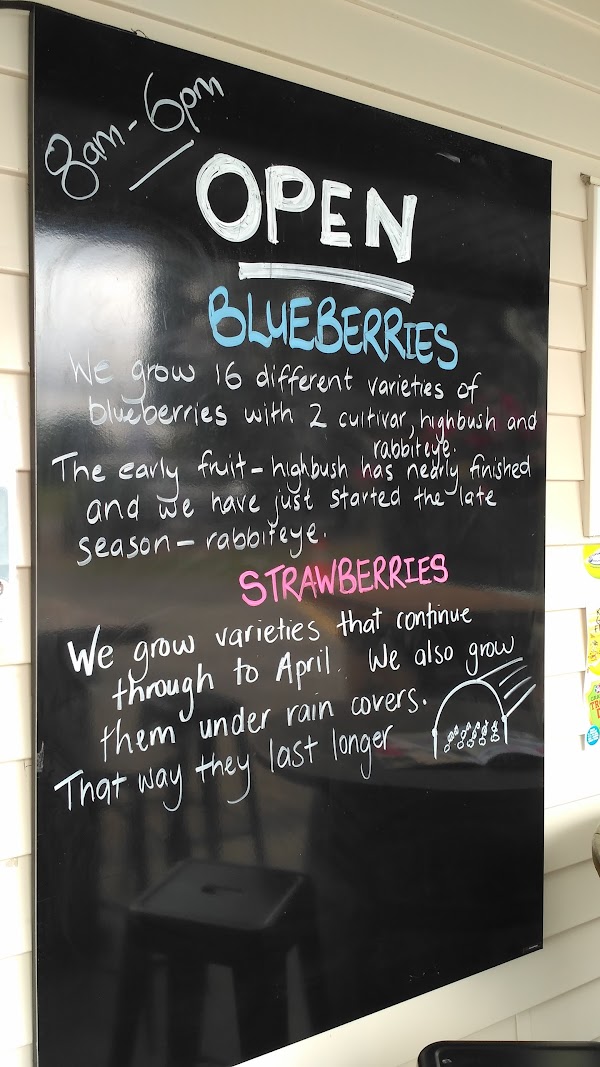 8am - 6pm
OPEN
BLUEBERRIES
We grow 16 different varieties of
blueberries with 2 cultivar, highbush and
rabbiteye.
The early fruit - highbush has nearly finished
and we have just started the late
season - rabbiteye.
STRAWBERRIES
We grow varieties that continue
through to April. We also grow
them under rain covers.
That way they last longer